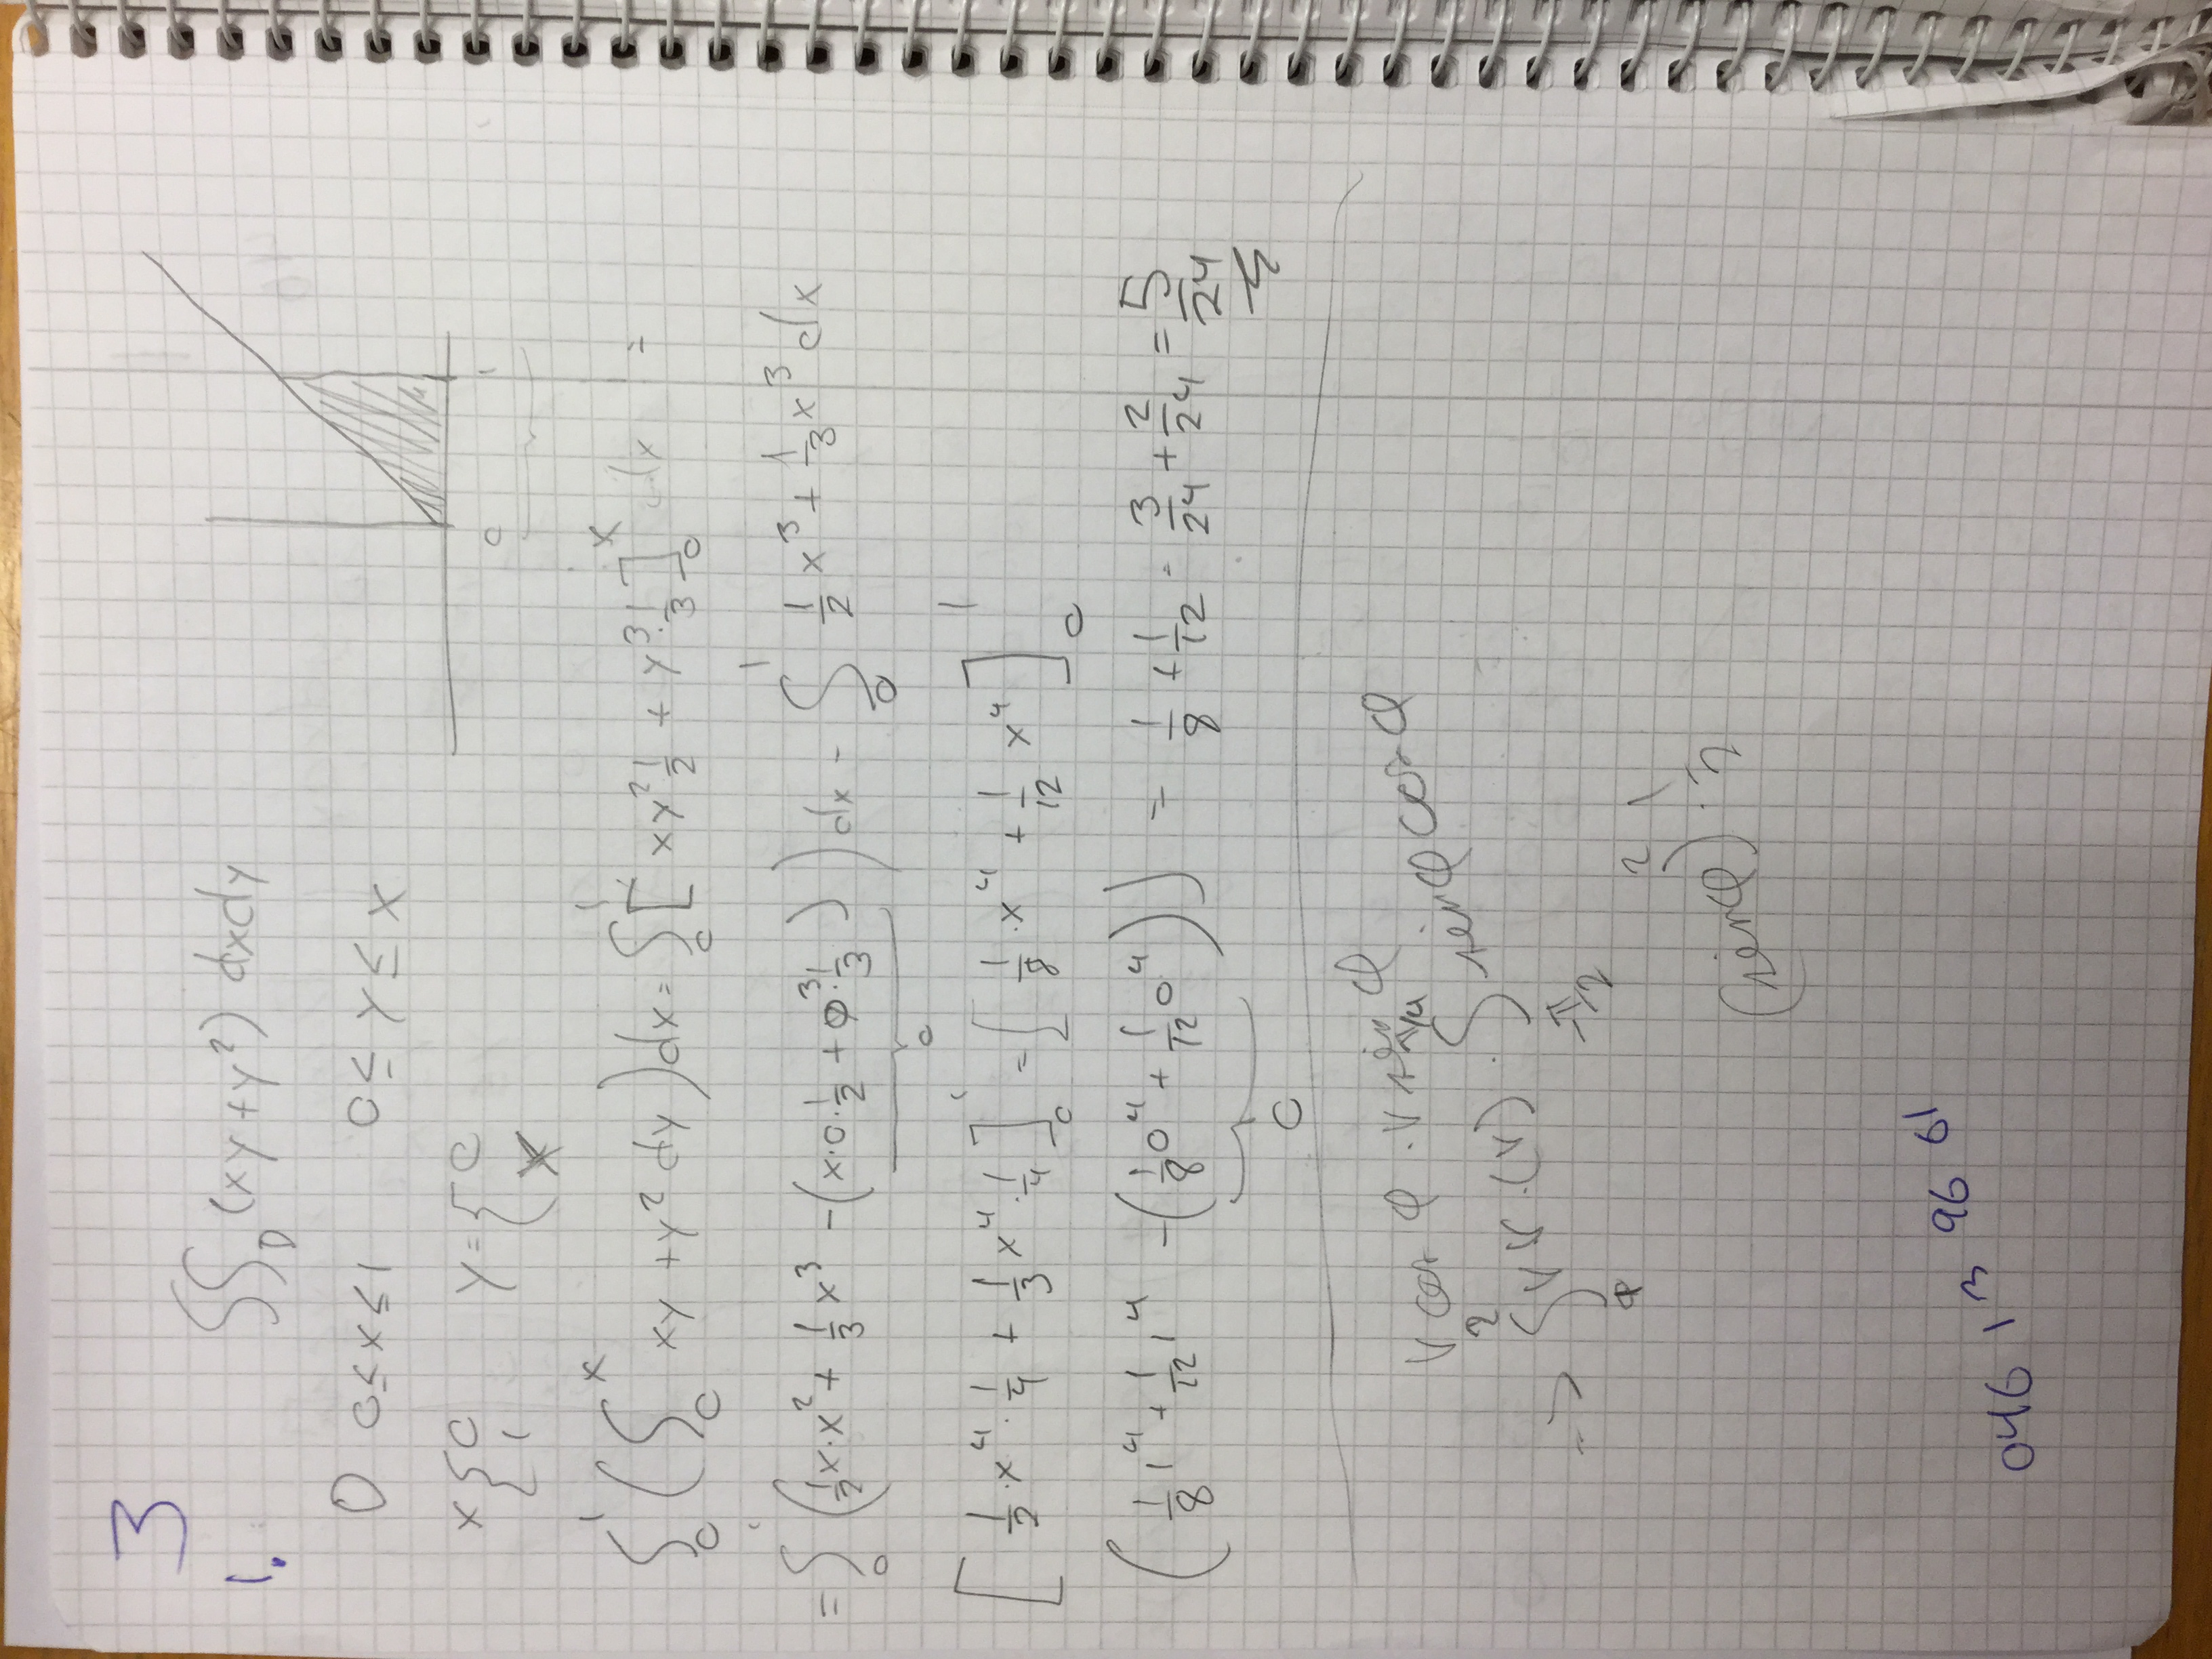 3
1. ∫∫_D (xy + y²) dxdy
D 0 ≤ x ≤ 1 0 ≤ y ≤ x
x { 0 1 y = { 0 x
0 1
∫₀¹ ( ∫₀ˣ xy + y² dy ) dx = ∫₀¹ [ xy² 1/2 + y³ · 1/3 ]₀ˣ dx =
= ∫₀¹ ( 1/2 x · x² + 1/3 x³ - ( x · 0 · 1/2 + 0³ · 1/3 ) ) dx = ∫₀¹ 1/2 x³ + 1/3 x³ dx
0
[ 1/2 · x⁴ · 1/4 + 1/3 x⁴ · 1/4 ]₀¹ = [ 1/8 · x⁴ + 1/12 x⁴ ]₀¹
( 1/8 1⁴ + 1/12 1⁴ - ( 1/8 0⁴ + 1/12 0⁴ ) ) = 1/8 + 1/12 = 3/24 + 2/24 = 5/24
0
r cos φ · r sin φ
=> ∫ r r · (r) · ∫_{-π/2}^{π/4} sin φ cos φ
(sin φ)² · 1/2
046 13 96 61